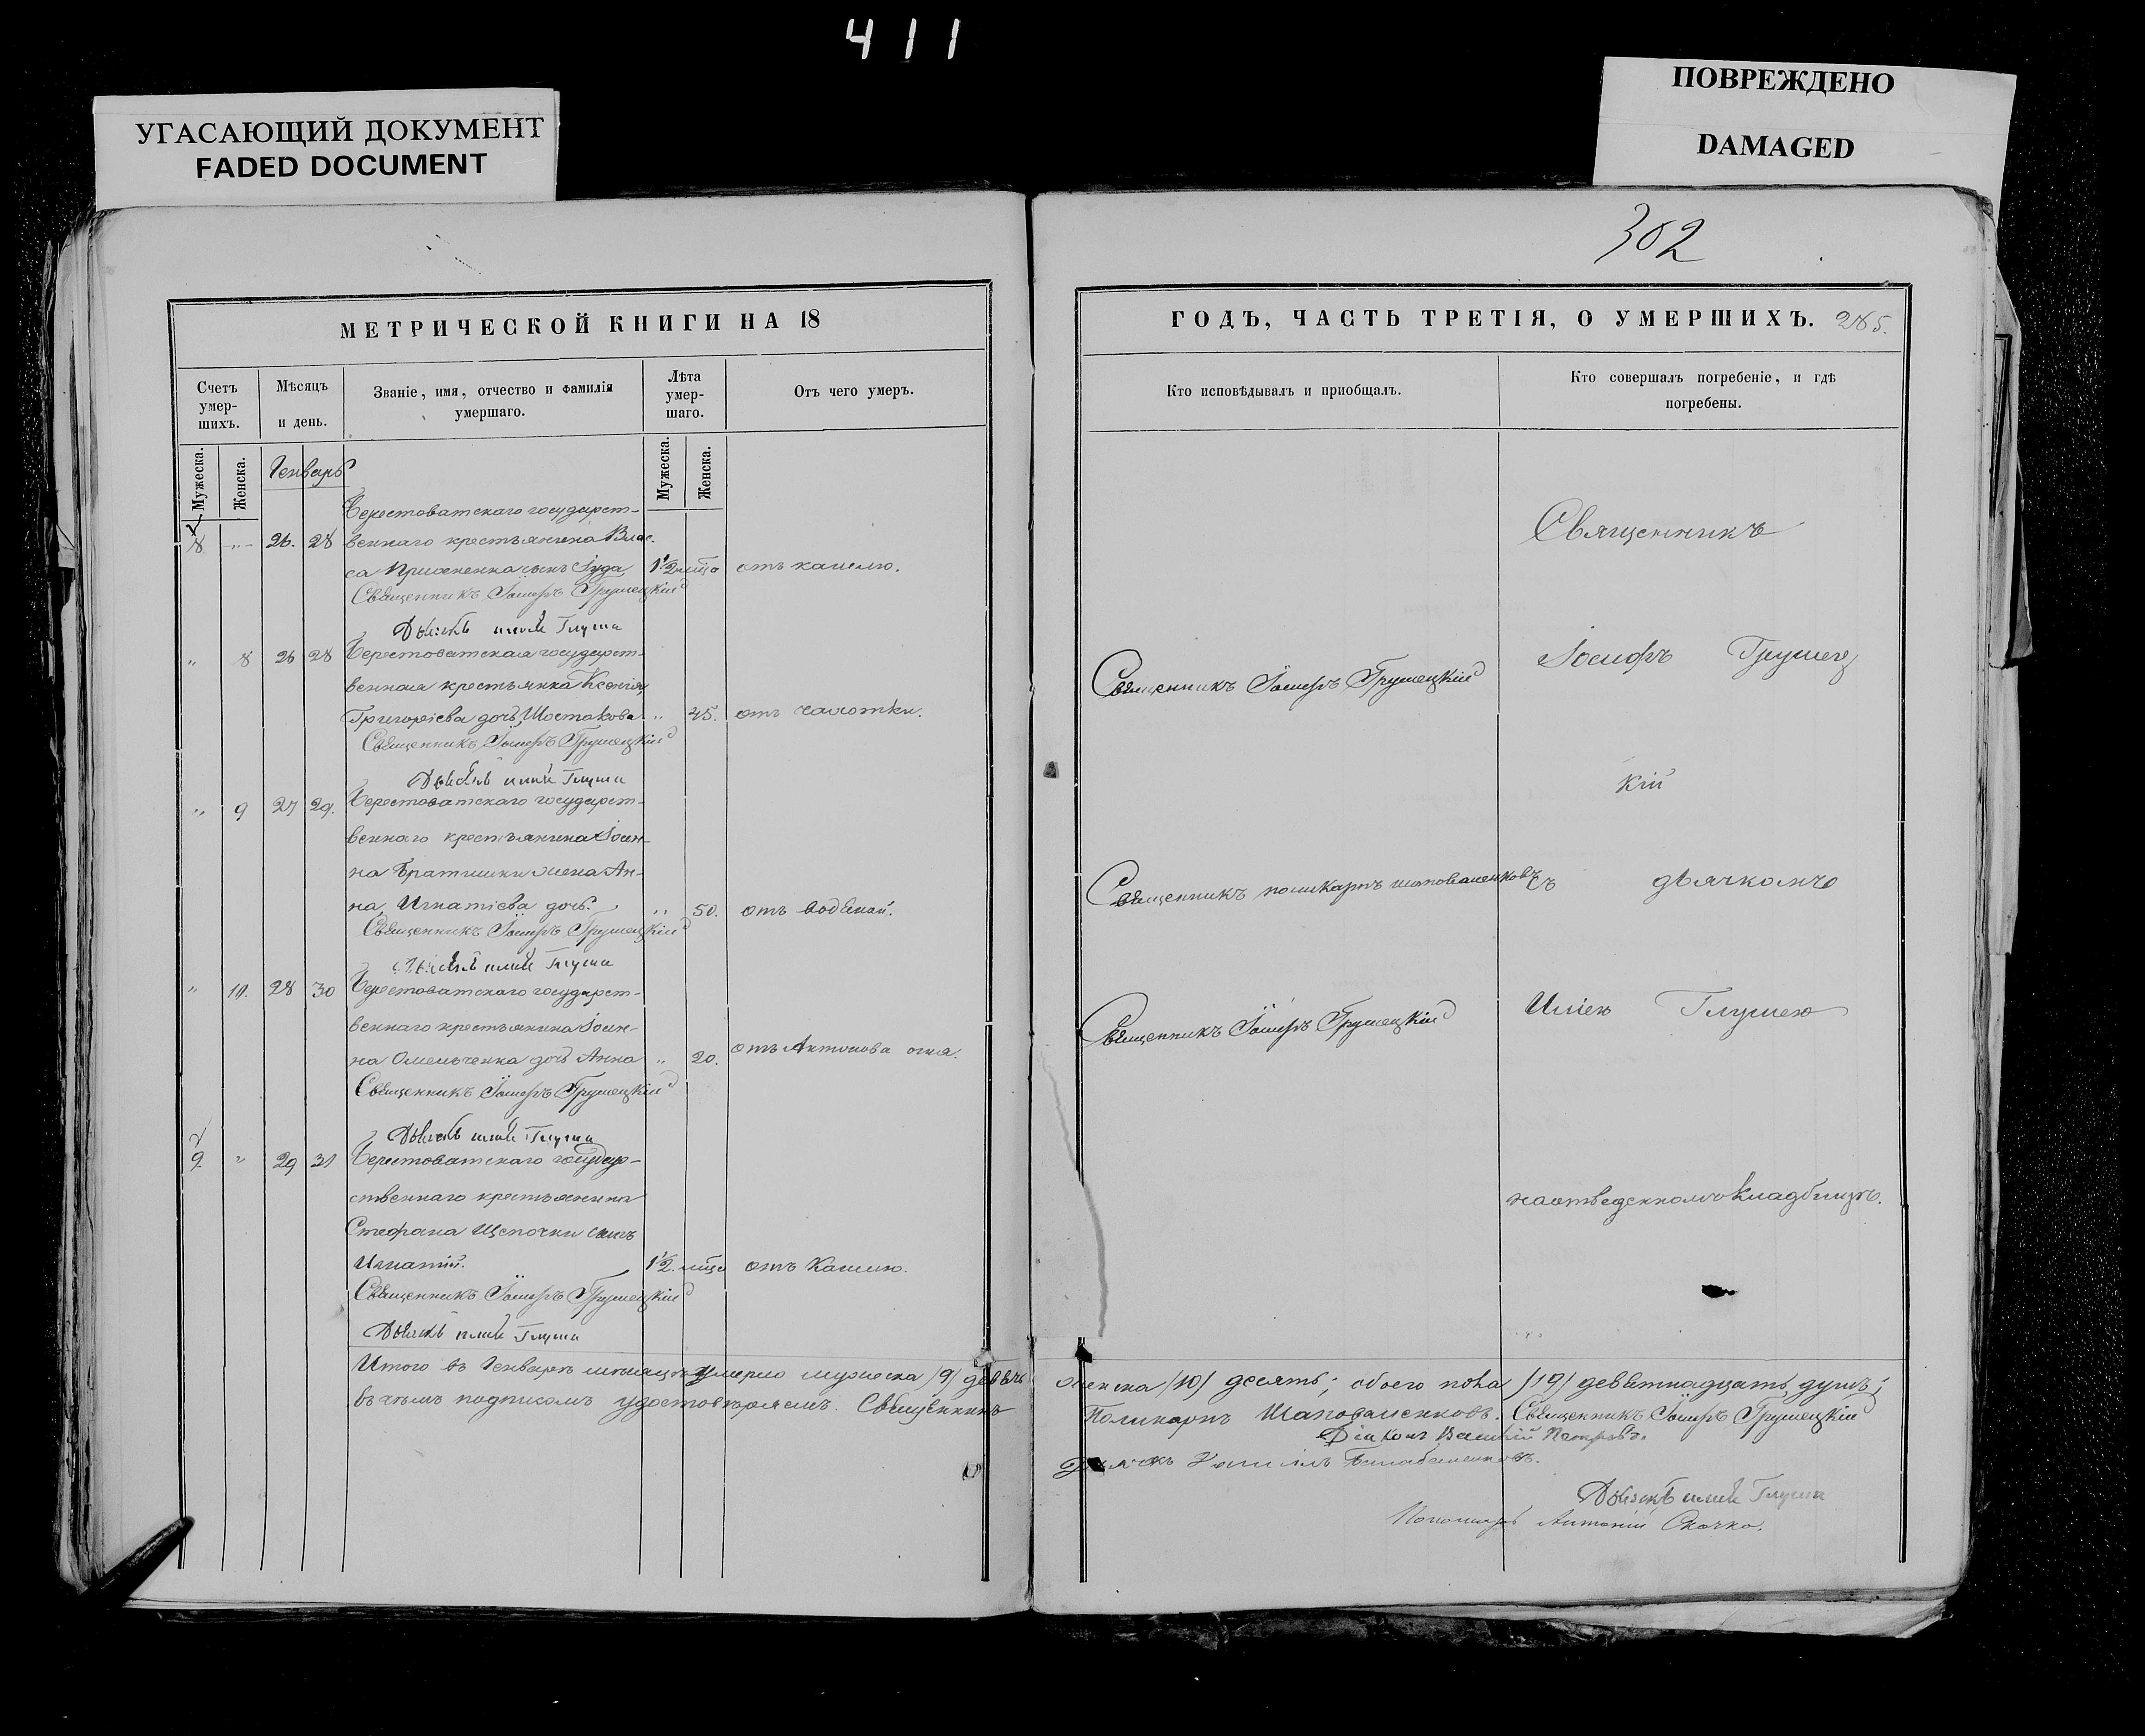 411
УГАСАЮЩИЙ ДОКУМЕНТ
FADED DOCUMENT
ПОВРЕЖДЕНО
DAMAGED
302
МЕТРИЧЕСКОЙ КНИГИ НА 18
Счетъ умер-
шихъ.
Мѣсяцъ
и день.
Званіе, имя, отчество и фамилія
умершаго.
Лѣта
умер-
шаго.
Отъ чего умеръ.
Мужеска.
Женска.
Мужеска.
Женска.
Генварь
Берестоватскаго государст-
8 „ 26. 28 веннаго крестьянина Влас-
са сынъ Іуда 1 1/2 мѣца отъ кашлю.
Священникъ Іосифъ Грушецкій
Дьячекъ Илія Глуша
„ 8 26 28 Берестоватская государст-
венная крестьянка Ксенія
Григоріева дочь Шостакова „ 45. отъ чахотки.
Священникъ Іосифъ Грушецкій
Дьячекъ Илія Глуша
„ 9 27 29. Берестоватскаго государст-
веннаго крестьянина Іоан-
на Братишки жена Ан-
на Игнатіева дочь. „ 50. отъ водяной.
Священникъ Іосифъ Грушецкій
Дьячекъ Илія Глуша
„ 10. 28 30 Берестоватскаго государст-
веннаго крестьянина Іоан-
на Омельченка дочь Анна „ 20. отъ Антонова огня.
Священникъ Іосифъ Грушецкій
Дьячекъ Илія Глуша
9. „ 29 31 Берестоватскаго государ-
ственнаго крестьянина
Стефана Щепочки сынъ
Игнатій. 1 1/2. мѣца отъ кашлю.
Священникъ Іосифъ Грушецкій
Дьячекъ Илія Глуша
Итого въ Генварѣ мѣсяцѣ умерло мужеска /9/ девять
въ чемъ подписомъ удостовѣряемъ. Священникъ
ГОДЪ, ЧАСТЬ ТРЕТІЯ, О УМЕРШИХЪ. 285.
Кто исповѣдывалъ и приобщалъ.
Кто совершалъ погребеніе, и гдѣ
погребены.
Священникъ
Іосифъ Грушец
Священникъ Іосифъ Грушецкій
кій
Священникъ Поликарпъ Шаповаленковъ
съ дьячкомъ
Иліею Глушею
Священникъ Іосифъ Грушецкій
на отведенномъ кладбищѣ.
женска /10/ десять; обоего пола /19/ девятнадцать душъ;
Поликарпъ Шаповаленковъ. Священникъ Іосифъ Грушецкій
Діаконъ Василій Петровъ.
Дьячекъ
Дьячекъ Илія Глуша
Пономарь Антоній Скочко.